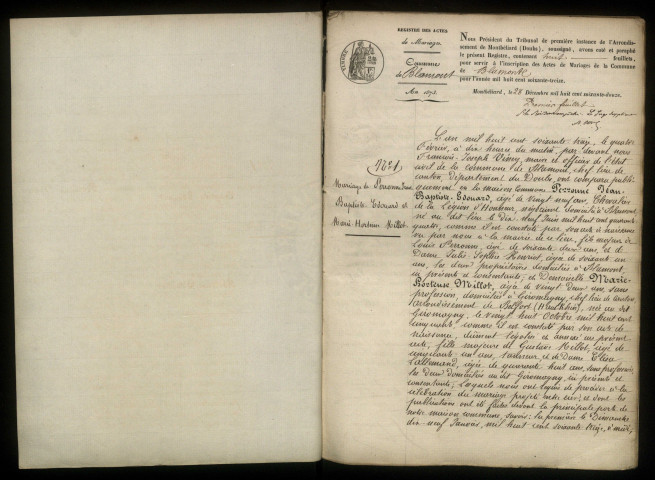 REGISTRE DES ACTES
de Mariages
Commune
de Blamont
An 1873
Nous Président du Tribunal de première instance de l'Arrondis-
sement de Montbéliard (Doubs), soussigné, avons coté et paraphé
le présent Registre, contenant huit feuillets,
pour servir à l'inscription des Actes de Mariages de la Commune
de Blamont,
pour l'année mil huit cent soixante-treize.
Montbéliard, le 28 Décembre mil huit cent soixante-douze.
Premier feuillet
No 1
Mariage de Perronne Jean
Baptiste Edouard et
Marie Hortense Millot.
L'an mil huit cent soixante treize, le quatre
Février, à dix heures du matin, par devant nous
François Joseph, maire et officier de l'état
civil de la commune de Blamont, chef lieu de
canton, département du Doubs, ont comparu publi-
quement en la maison commune Perronne Jean-
Baptiste-Edouard, âgé de vingt neuf ans, Chevalier
de la Légion d'Honneur, domicilié à Blamont,
né au dit lieu le dix neuf Juin mil huit cent quarante
quatre, comme s'est constaté par son acte de naissance
vu par nous à la mairie de ce lieu, fils majeur de
Louis Perronne, âgé de soixante deux ans, et de
Dame Julie Sophie Henriot, âgée de soixante un
ans, les deux propriétaires domiciliés à Blamont,
ici présents et consentants; et Demoiselle Marie-
Hortense Millot, âgée de vingt deux ans, sans
profession, domiciliée à Giromagny, chef lieu de canton
arrondissement de Belfort (Haut Rhin), née au dit
Giromagny, le vingt huit Octobre mil huit cent
cinquante, comme il est constaté par son acte de
naissance, dûment légalisé et annexé au présent
acte, fille majeure de Gustave Millot, âgé de
cinquante un ans, et de Dame Elisa
Lallemand, âgée de quarante huit ans, sans profession,
les deux domiciliés au dit Giromagny, ici présents et
consentants; Lesquels nous ont requis de procéder à la
célébration du mariage projeté entre eux, et dont les
publications ont été faites devant la principale porte de
notre maison commune, savoir: la première le Dimanche
dix-neuf Janvier, mil huit cent soixante treize, à midi,